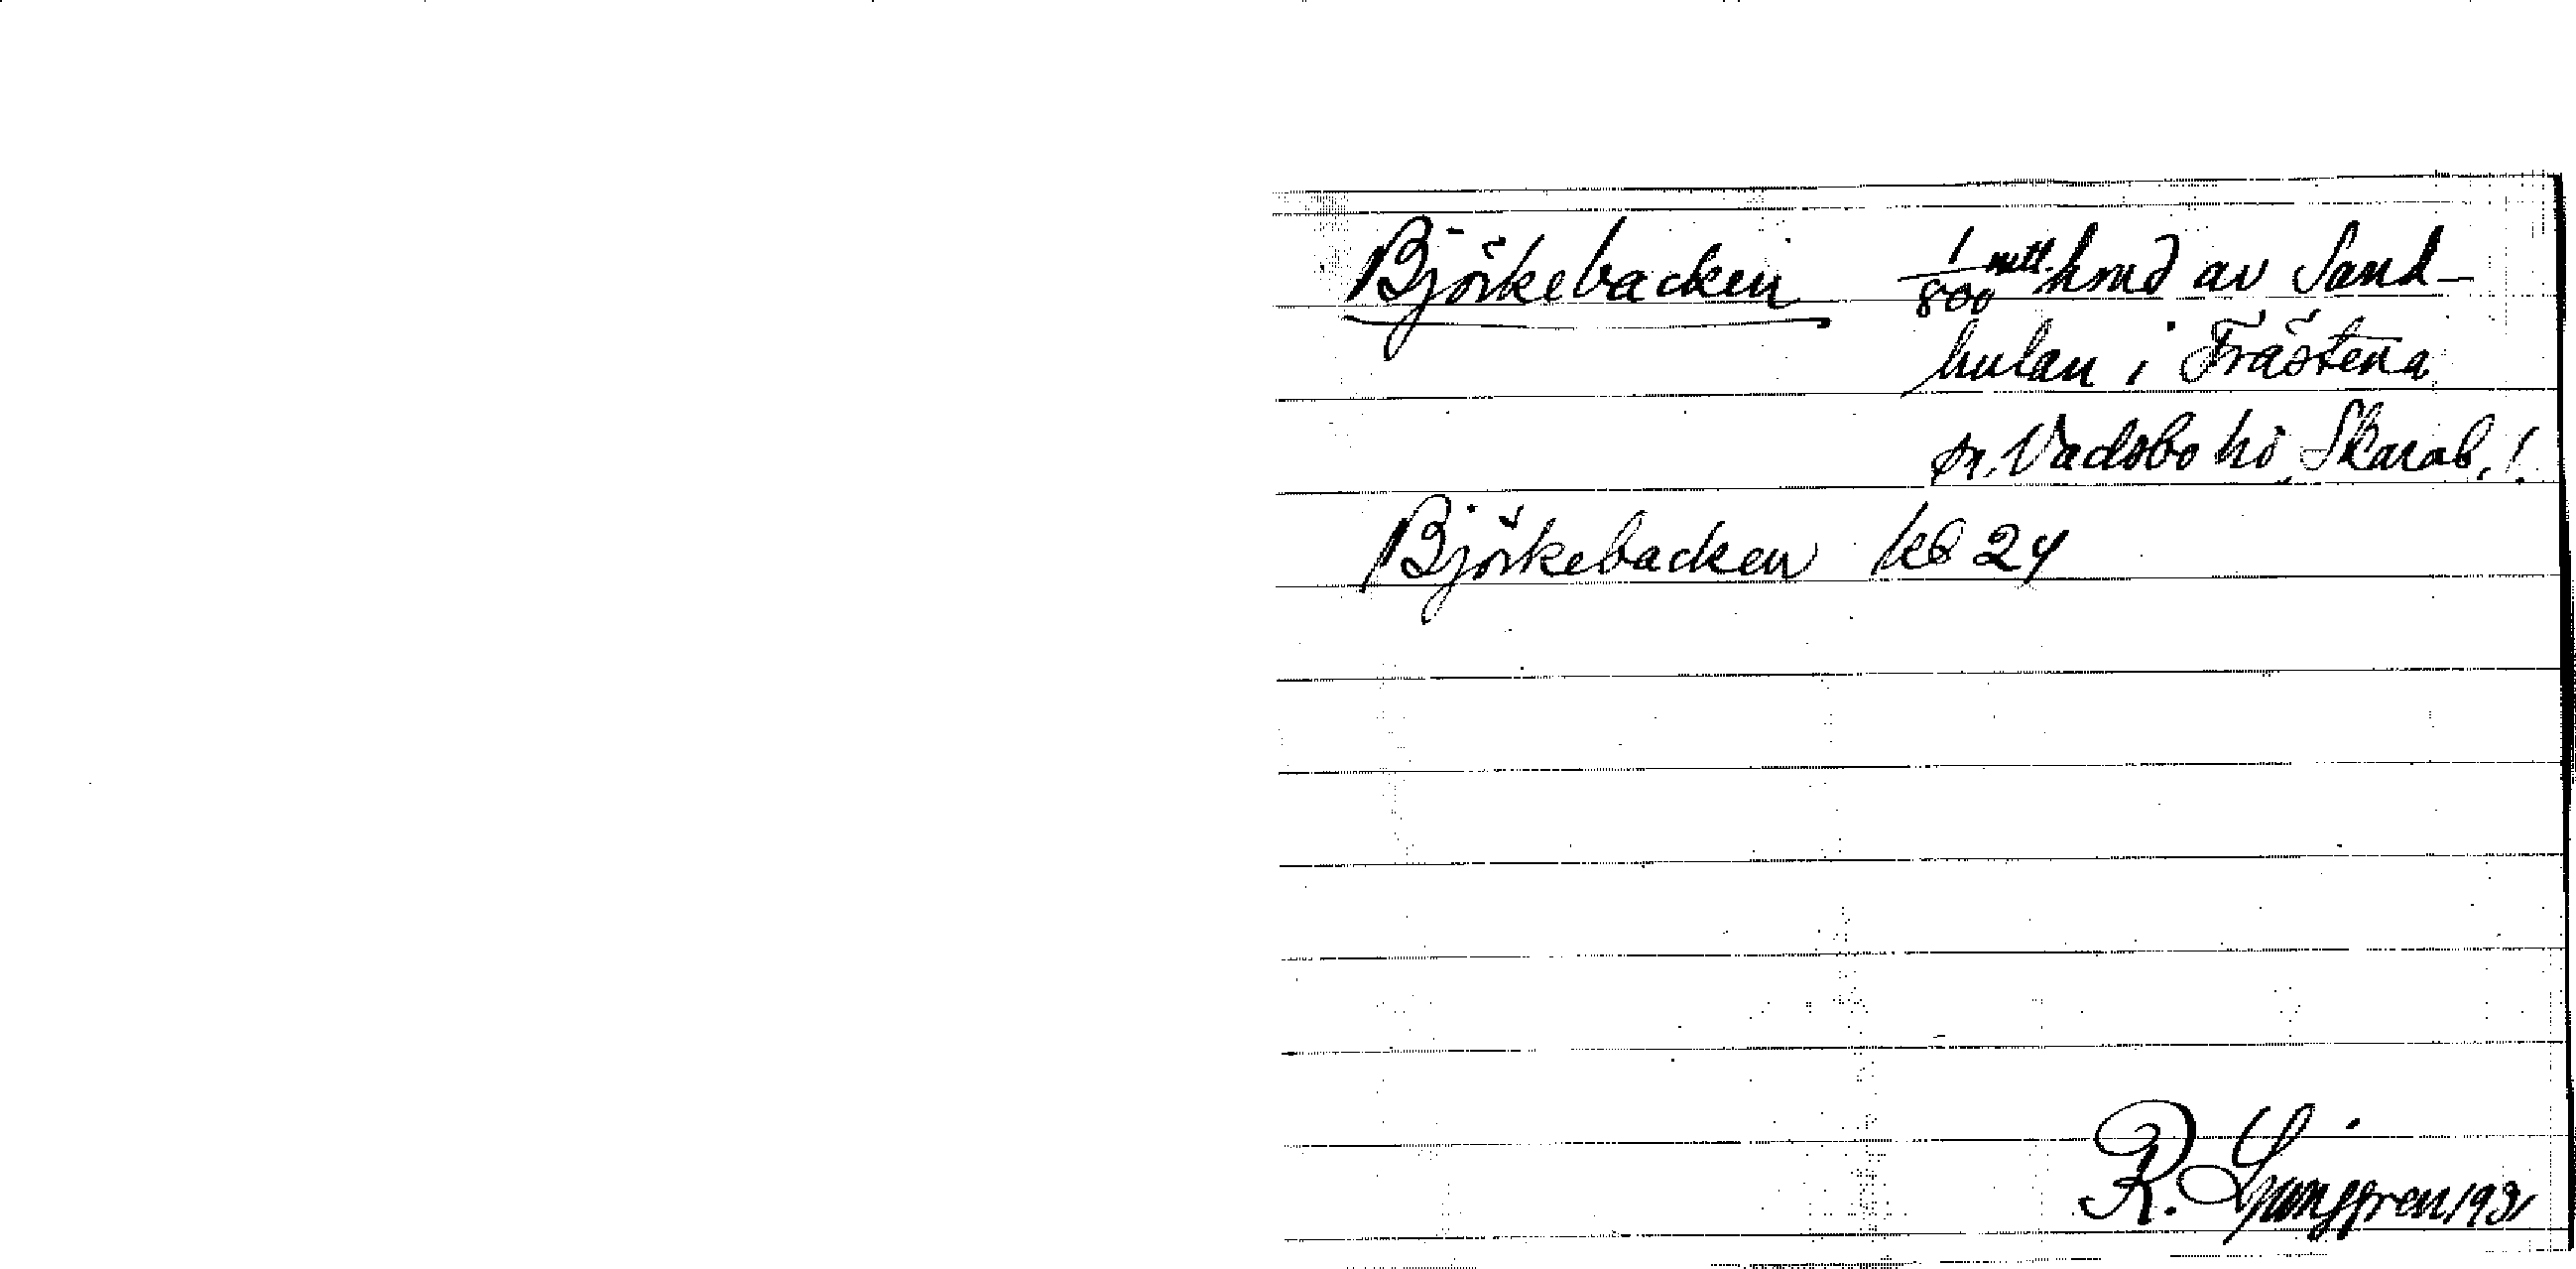 Björkebacken 1/800 mtl. hmd av Sand-
hulan i Fräštena
sn. Vadsbo hd. Skarab. l.
Björkebacken kb 24
R. Ljunggren 1931